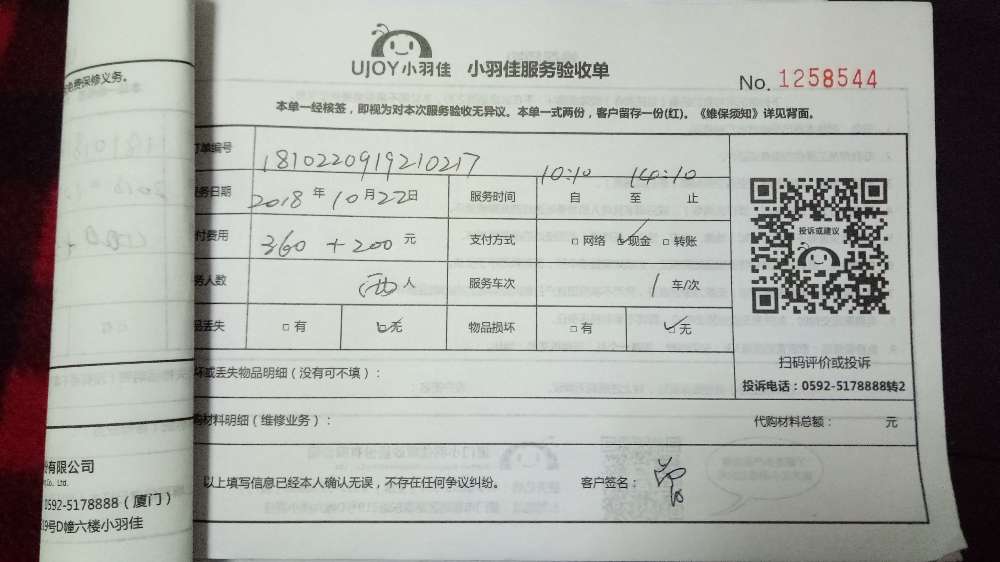 免费保修义务。
UJOY小羽佳 小羽佳服务验收单
No. 1258544
本单一经核签，即视为对本次服务验收无异议。本单一式两份，客户留存一份(红)。《维保须知》详见背面。
订单编号 1810220919210217
服务日期 2018 年 10 月 22 日 服务时间 10:10 自 至 14:10 止
付费用 360 + 200 元 支付方式 □ 网络 ☑ 现金 □ 转账
务人数 两 人 服务车次 1 车/次
品丢失 □ 有 ☑ 无 物品损坏 □ 有 ☑ 无
投诉或建议
UJOY
扫码评价或投诉
投诉电话：0592-5178888转2
坏或丢失物品明细（没有可不填）：
购材料明细（维修业务）： 代购材料总额： 元
以上填写信息已经本人确认无误，不存在任何争议纠纷。 客户签名：
有限公司
Co., Ltd.
0592-5178888（厦门）
9号D幢六楼小羽佳